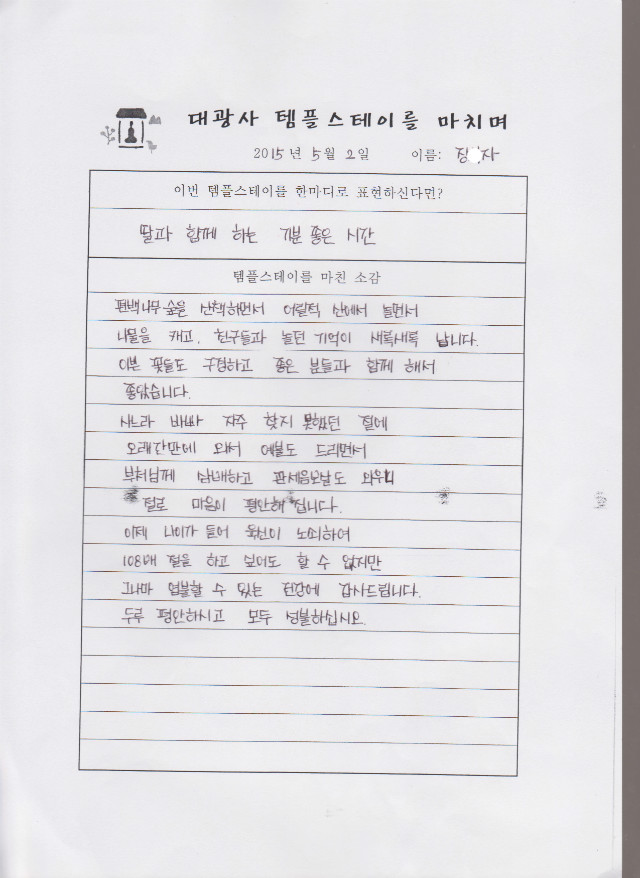 대광사 템플스테이를 마치며
2015년 5월 2일 이름: 정 자
이번 템플스테이를 한마디로 표현하신다면?
딸과 함께 하는 기분 좋은 시간
템플스테이를 마친 소감
편백나무숲을 산책하면서 어릴적 산에서 놀면서
나물을 캐고, 친구들과 놀던 기억이 새록새록 납니다.
이쁜 꽃들도 구경하고 좋은 분들과 함께 해서
좋았습니다.
사느라 바빠 자주 찾지 못했던 절에
오래간만에 와서 예불도 드리면서
부처님께 삼배하고 관세음보살도 외우니
절로 마음이 평안해 집니다.
이제 나이가 들어 육신이 노쇠하여
108배 절을 하고 싶어도 할 수 없지만
그나마 염불할 수 있는 건강에 감사드립니다.
두루 평안하시고 모두 성불하십시요.